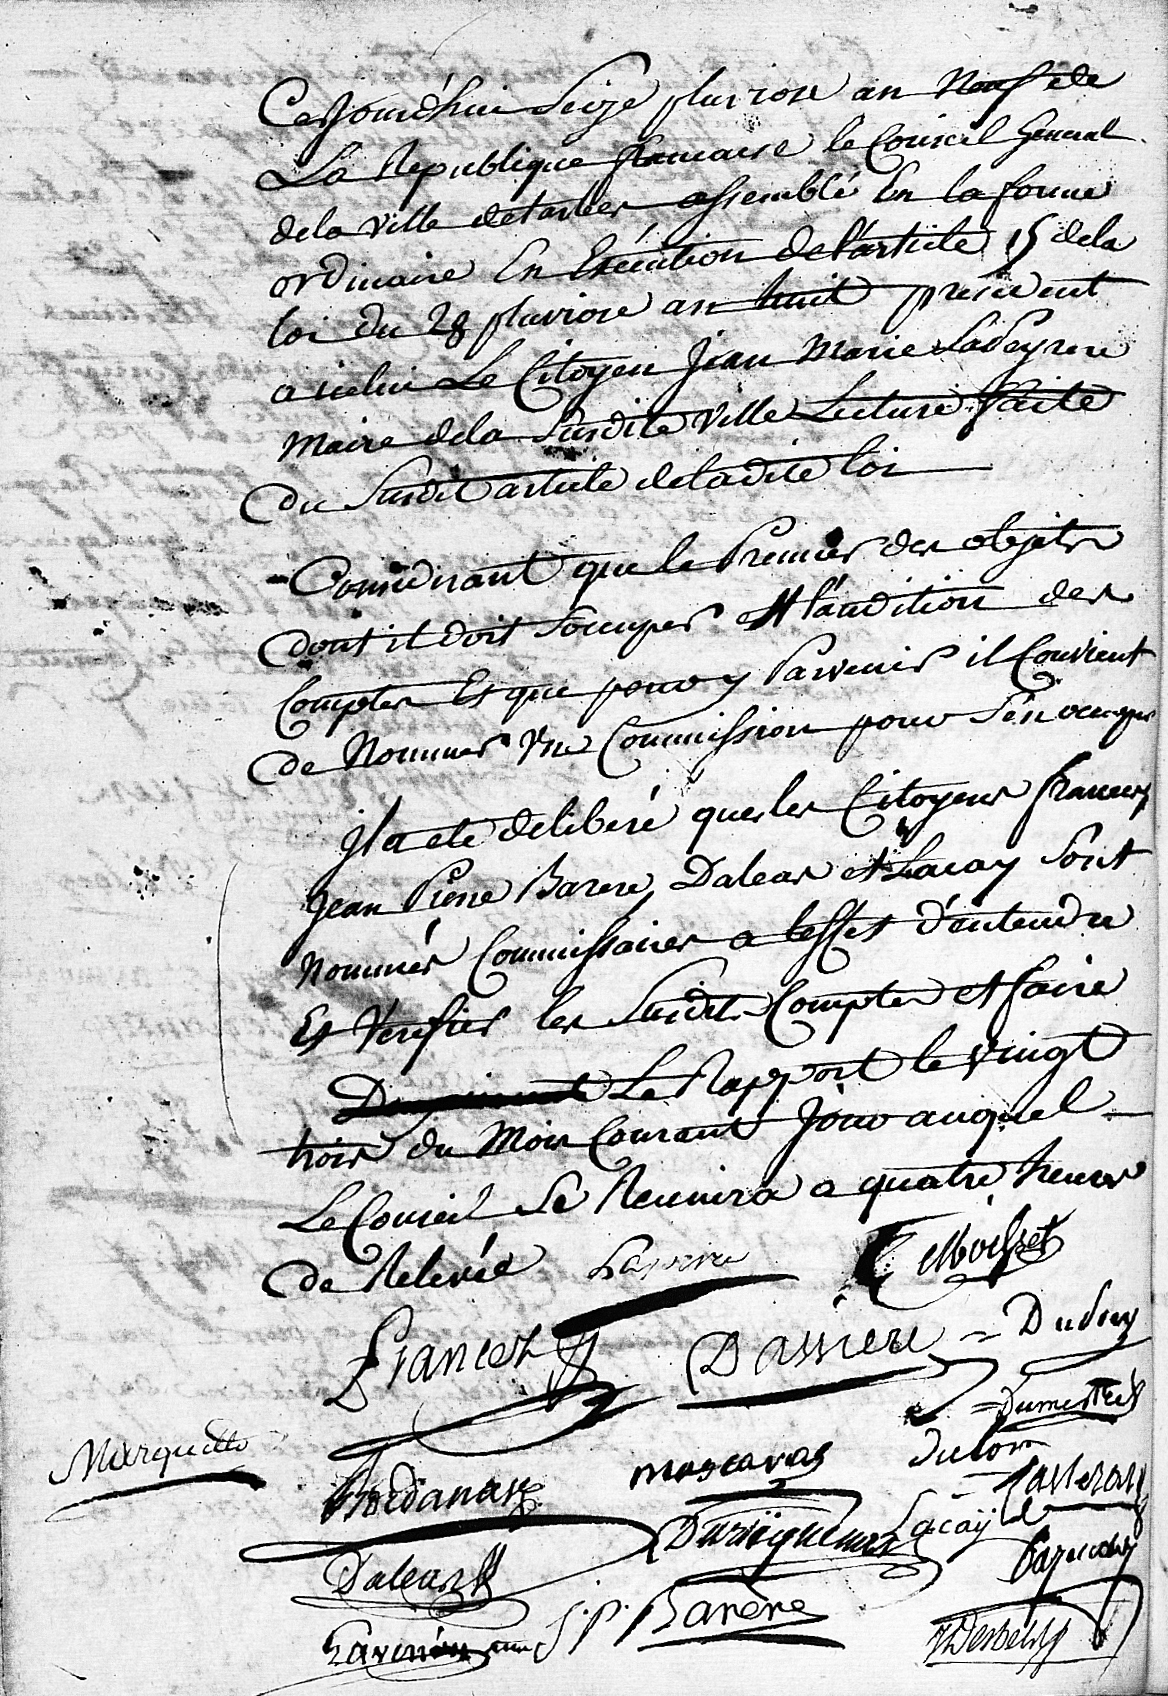 Cejourdhui Seize pluviose an Neuf de
La Republique francaise le Conseil General
dela ville detarbes assemblé En la forme
ordinaire En Execution de l'article 15 dela
loi du 28 pluviose an huit present
a icelui Le Citoyen Jean Marie Ladeyrere
Maire dela Susdite Ville Lecture faite
du Susdit article deladite loi
Considerant que le Premier des objets
dont il doit Soccuper est l'audition des
Comptes Et que pour y Parvenir il Convient
de Nommer Une Commission pour S'en occuper
Il a eté deliberé que les Citoyens francez
Jean Pierre Barere, Daleas et Lacay Sont
Nommés Commissaires a leffet d'entendre
Et Verifier les Susdits Comptes et faire
Le Rapport le vingt
trois du Mois Courant Jour auquel
Le Conseil Se Reunira a quatre heures
de Relevée
Francez Dassieu
Marquette
mascaras
Dulom
Casteran
Lacaÿ
Daleas
J. P. Barère